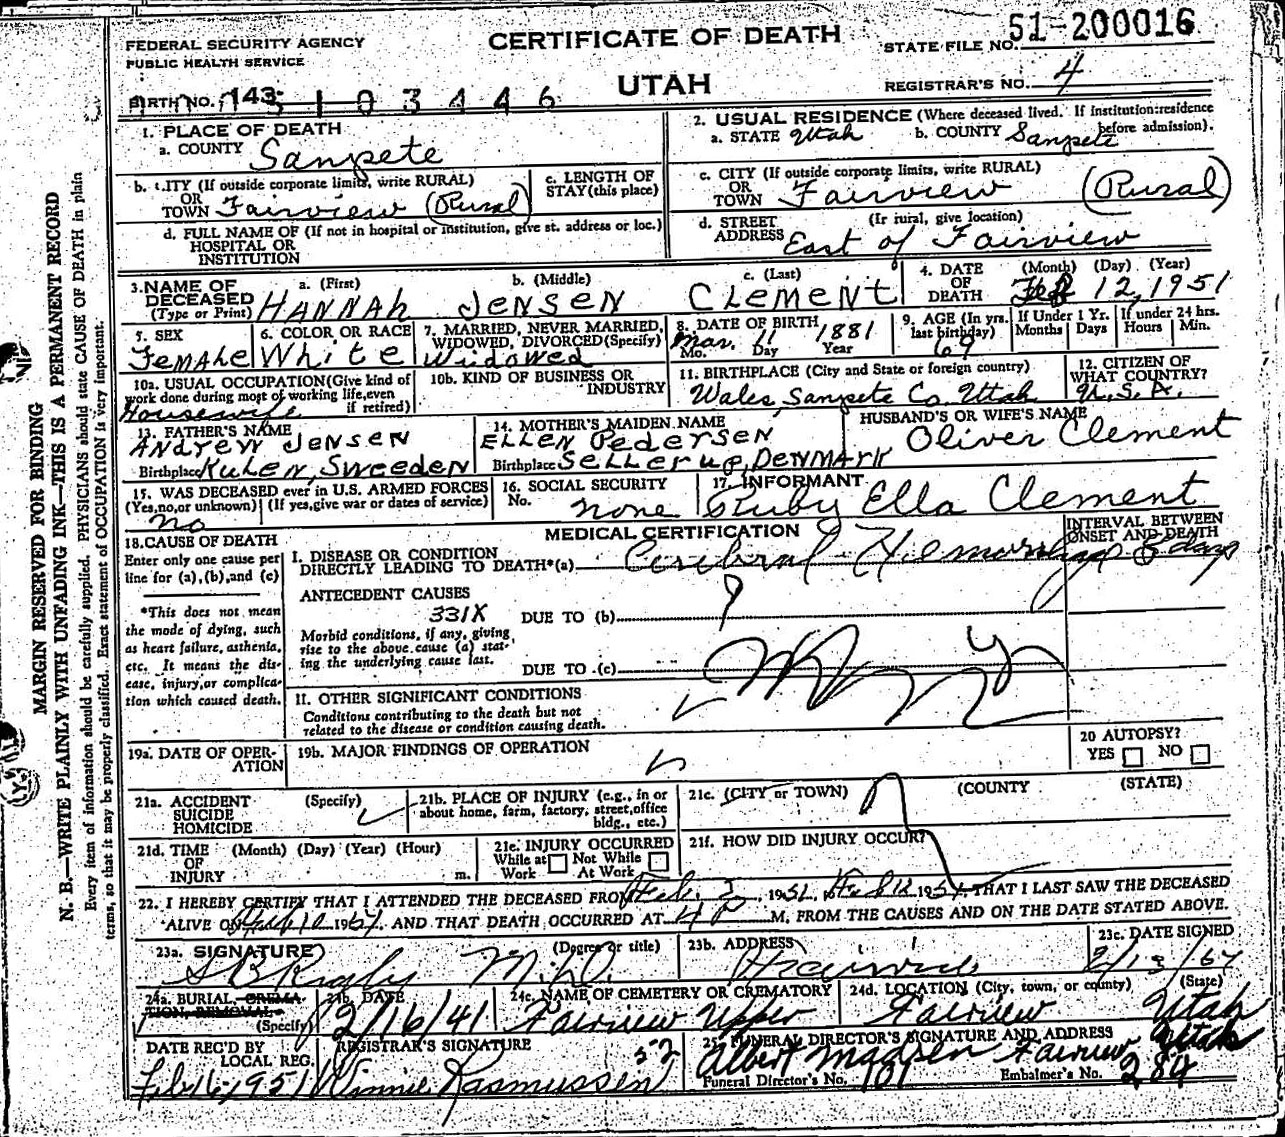 51-200016
FEDERAL SECURITY AGENCY
PUBLIC HEALTH SERVICE
CERTIFICATE OF DEATH
STATE FILE NO.
UTAH
REGISTRAR'S NO. 4
BIRTH NO. 143
1 0 3 4 4 6
1. PLACE OF DEATH
a. COUNTY Sanpete
2. USUAL RESIDENCE (Where deceased lived. If institution: residence before admission).
a. STATE Utah b. COUNTY Sanpete
b. CITY (If outside corporate limits, write RURAL) OR TOWN Fairview (Rural)
c. LENGTH OF STAY (this place)
c. CITY (If outside corporate limits, write RURAL) OR TOWN Fairview (Rural)
d. FULL NAME OF (If not in hospital or institution, give st. address or loc.) HOSPITAL OR INSTITUTION
d. STREET ADDRESS (If rural, give location) East of Fairview
3. NAME OF DECEASED (Type or Print)
a. (First) HANNAH b. (Middle) JENSEN c. (Last) CLEMENT
4. DATE OF DEATH (Month) (Day) (Year) Feb 12, 1951
5. SEX Female
6. COLOR OR RACE White
7. MARRIED, NEVER MARRIED, WIDOWED, DIVORCED (Specify) Widowed
8. DATE OF BIRTH Mar. 11 1881
Mo. Day Year
9. AGE (In yrs. last birthday) 69
If Under 1 Yr. Months Days
If under 24 hrs. Hours Min.
10a. USUAL OCCUPATION (Give kind of work done during most of working life, even if retired) Housewife
10b. KIND OF BUSINESS OR INDUSTRY
11. BIRTHPLACE (City and State or foreign country) Wales, Sanpete Co. Utah
12. CITIZEN OF WHAT COUNTRY? U.S.A.
13. FATHER'S NAME ANDREW JENSEN
Birthplace KULEN, SWEEDEN
14. MOTHER'S MAIDEN NAME ELLEN PEDERSEN
Birthplace SELLERUP, DENMARK
HUSBAND'S OR WIFE'S NAME Oliver Clement
15. WAS DECEASED ever in U.S. ARMED FORCES (Yes, no, or unknown) (If yes, give war or dates of service) no
16. SOCIAL SECURITY No. none
17. INFORMANT Ruby Ella Clement
18. CAUSE OF DEATH
Enter only one cause per line for (a), (b), and (c)
*This does not mean the mode of dying, such as heart failure, asthenia, etc. It means the disease, injury, or complication which caused death.
MEDICAL CERTIFICATION
INTERVAL BETWEEN ONSET AND DEATH
I. DISEASE OR CONDITION DIRECTLY LEADING TO DEATH*(a) Cerebral Hemorrhage days
ANTECEDENT CAUSES
331X
DUE TO (b)
Morbid conditions, if any, giving rise to the above cause (a) stating the underlying cause last.
DUE TO (c)
II. OTHER SIGNIFICANT CONDITIONS
Conditions contributing to the death but not related to the disease or condition causing death.
19a. DATE OF OPERATION
19b. MAJOR FINDINGS OF OPERATION
20 AUTOPSY?
YES NO
21a. ACCIDENT SUICIDE HOMICIDE (Specify)
21b. PLACE OF INJURY (e.g., in or about home, farm, factory, street, office bldg., etc.)
21c. (CITY or TOWN) (COUNTY) (STATE)
21d. TIME OF INJURY (Month) (Day) (Year) (Hour) m.
21e. INJURY OCCURRED While at Work Not While At Work
21f. HOW DID INJURY OCCUR?
22. I HEREBY CERTIFY THAT I ATTENDED THE DECEASED FROM Feb. 1951, to Feb 12 1951, THAT I LAST SAW THE DECEASED
ALIVE ON Feb 10 195 AND THAT DEATH OCCURRED AT 4 P M, FROM THE CAUSES AND ON THE DATE STATED ABOVE.
23a. SIGNATURE (Degree or title) M.D.
23b. ADDRESS
23c. DATE SIGNED 2/13/
24a. BURIAL, CREMATION, REMOVAL (Specify)
24b. DATE 2/16/41
24c. NAME OF CEMETERY OR CREMATORY Fairview Upper
24d. LOCATION (City, town, or county) (State) Fairview Utah
DATE REC'D BY LOCAL REG. Feb 16, 1951
REGISTRAR'S SIGNATURE Winnie Rasmussen
52
25. FUNERAL DIRECTOR'S SIGNATURE AND ADDRESS Albert Madsen Fairview Utah
Funeral Director's No. 101 Embalmer's No. 284
MARGIN RESERVED FOR BINDING
N. B.—WRITE PLAINLY WITH UNFADING INK—THIS IS A PERMANENT RECORD
Every item of information should be carefully supplied. PHYSICIANS should state CAUSE OF DEATH in plain
terms, so that it may be properly classified. Exact statement of OCCUPATION is very important.